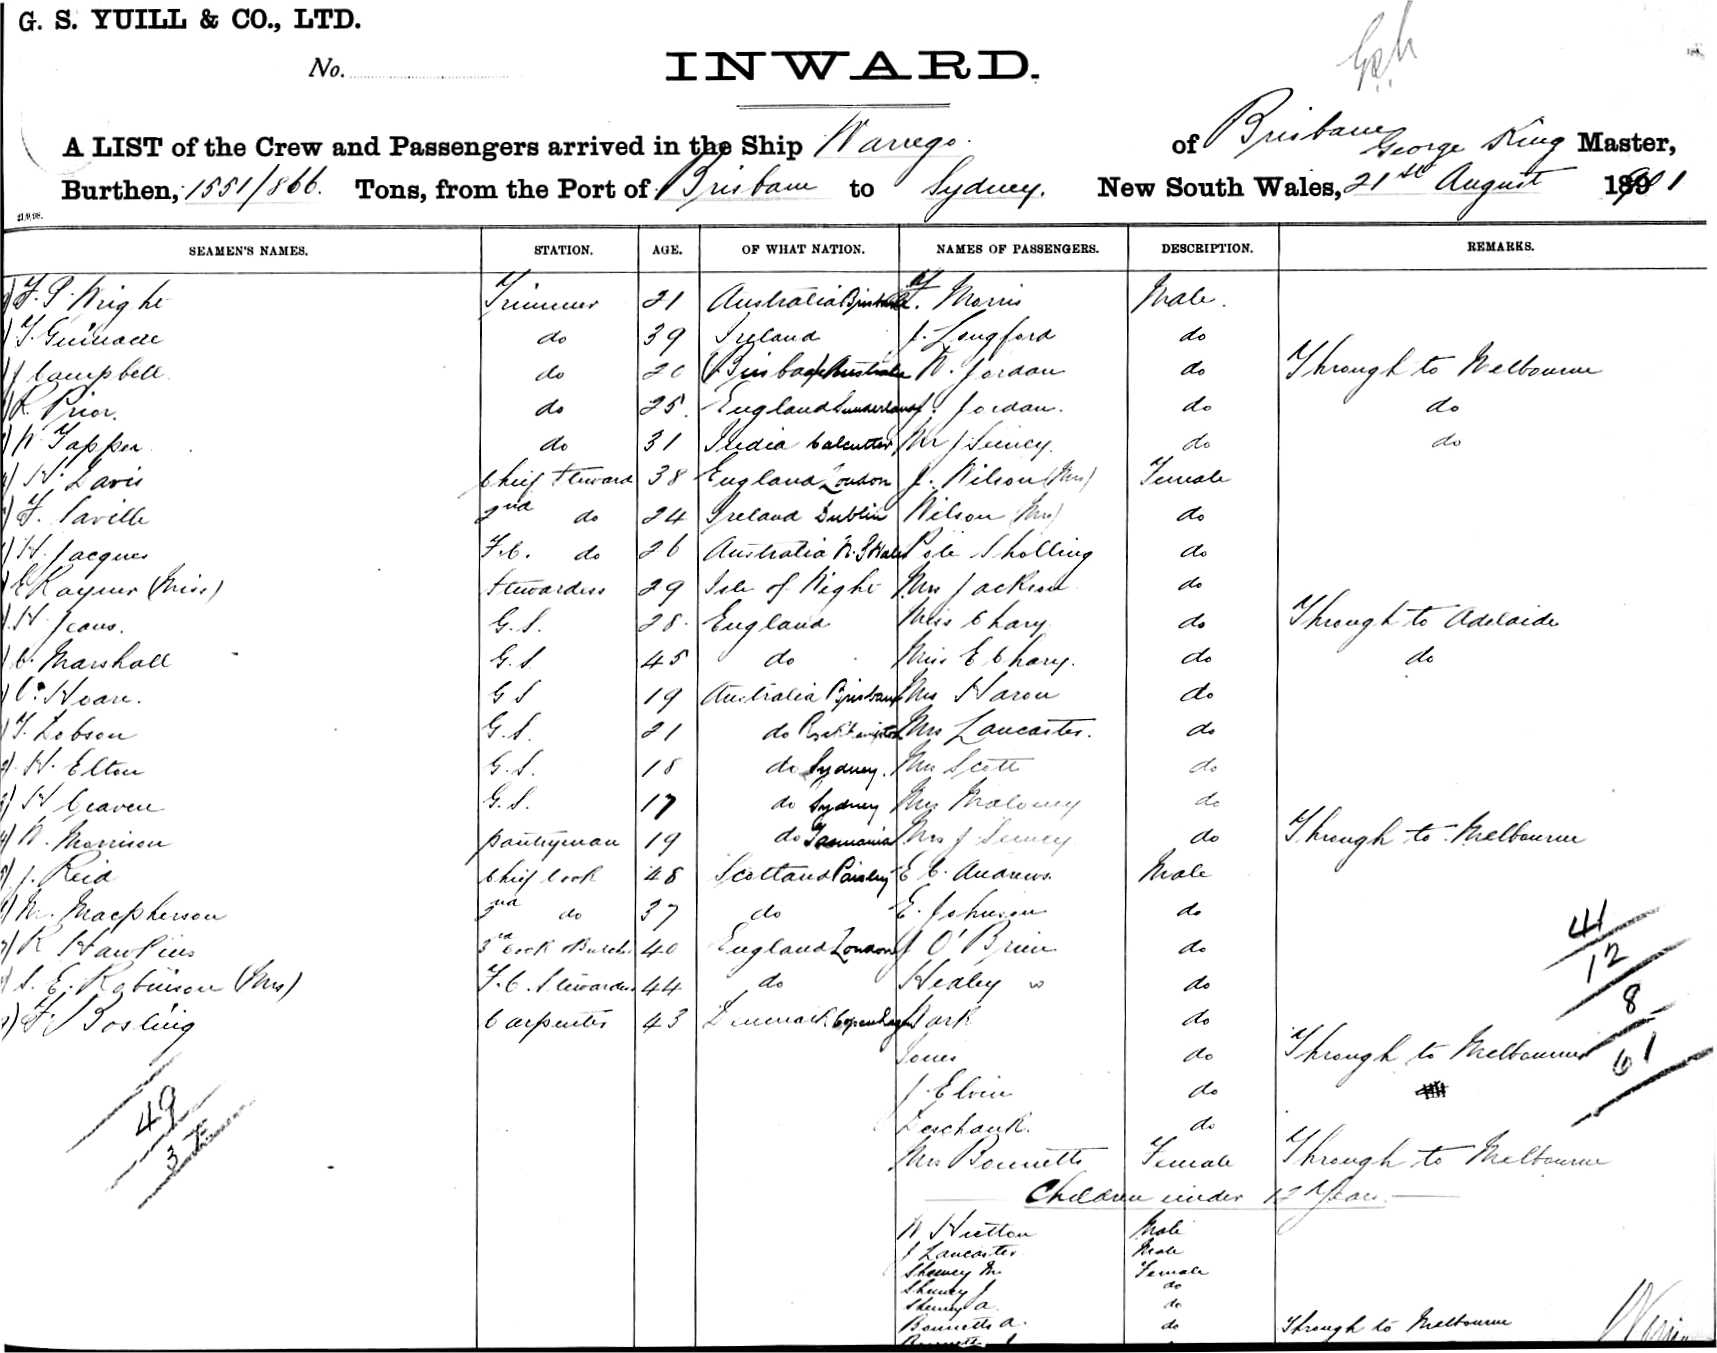 G. S. YUILL & CO., LTD.
No.
INWARD.
A LIST of the Crew and Passengers arrived in the Ship Warrego. of Brisbane George King Master,
Burthen, 1551/866. Tons, from the Port of Brisbane to Sydney. New South Wales, 21st August 1901
21/9/98.
SEAMEN'S NAMES. STATION. AGE. OF WHAT NATION. NAMES OF PASSENGERS. DESCRIPTION. REMARKS.
F. P Wright Trimmer 21 Australia Brisbane Morris Male.
T. do 39 Ireland J. Longford do
J Campbell do Brisbane Australia W. Jordan do Through to Melbourne
R. Prior. do 25. England Sunderland J. Jordan. do do
W Tapper do 31 India Calcutta Mr J do do
H. Davis Chief Steward 38 England London J. Wilson (Mrs) Female
F. Saville 2nd do 24 Ireland Dublin Wilson (Mrs) do
H. Jacques F.C. do 26 Australia N. S Wales do
E Rayner (Miss) Stewardess 29 Isle of Wight Mrs Jackson do
H Jeans. G.S. 28. England Miss Chary do Through to Adelaide
C. Marshall G.S 45 do Miss E Chary. do do
C. Hoare. G S 19 Australia Brisbane Mrs Haron do
T. Dobson G.S. 21 do Rockhampton Mrs Lancaster. do
H. Elton G.S. 18 do Sydney. Mrs Scott do
H Craven G.S. 17 do Sydney Mrs Maloney do
W. Morrison pantryman 19 do Tasmania Mrs J do Through to Melbourne
J. Reid Chief Cook 48 Scotland Paisley E C. Andrews Male
M. Macpherson 2nd do 37 do E. Johnson do
R Hawkins 3rd Cook & Butcher 40 England London J O'Brien do
S. E. Robinson (Mrs) F.C. Stewardess 44 do Healey do
F. J Bosling Carpenter 43 Denmark Copenhagen Dark do
Jones do Through to Melbourne
J. Elvin do
do
Mrs Bonnetts Female Through to Melbourne
Children under 12 Years.
W Hutton Male
J Lancaster Male
Sheeney M. Female
Sheeney J do
Sheeney A. do
Bonnetts A. do Through to Melbourne
41
12
8
61
49
3